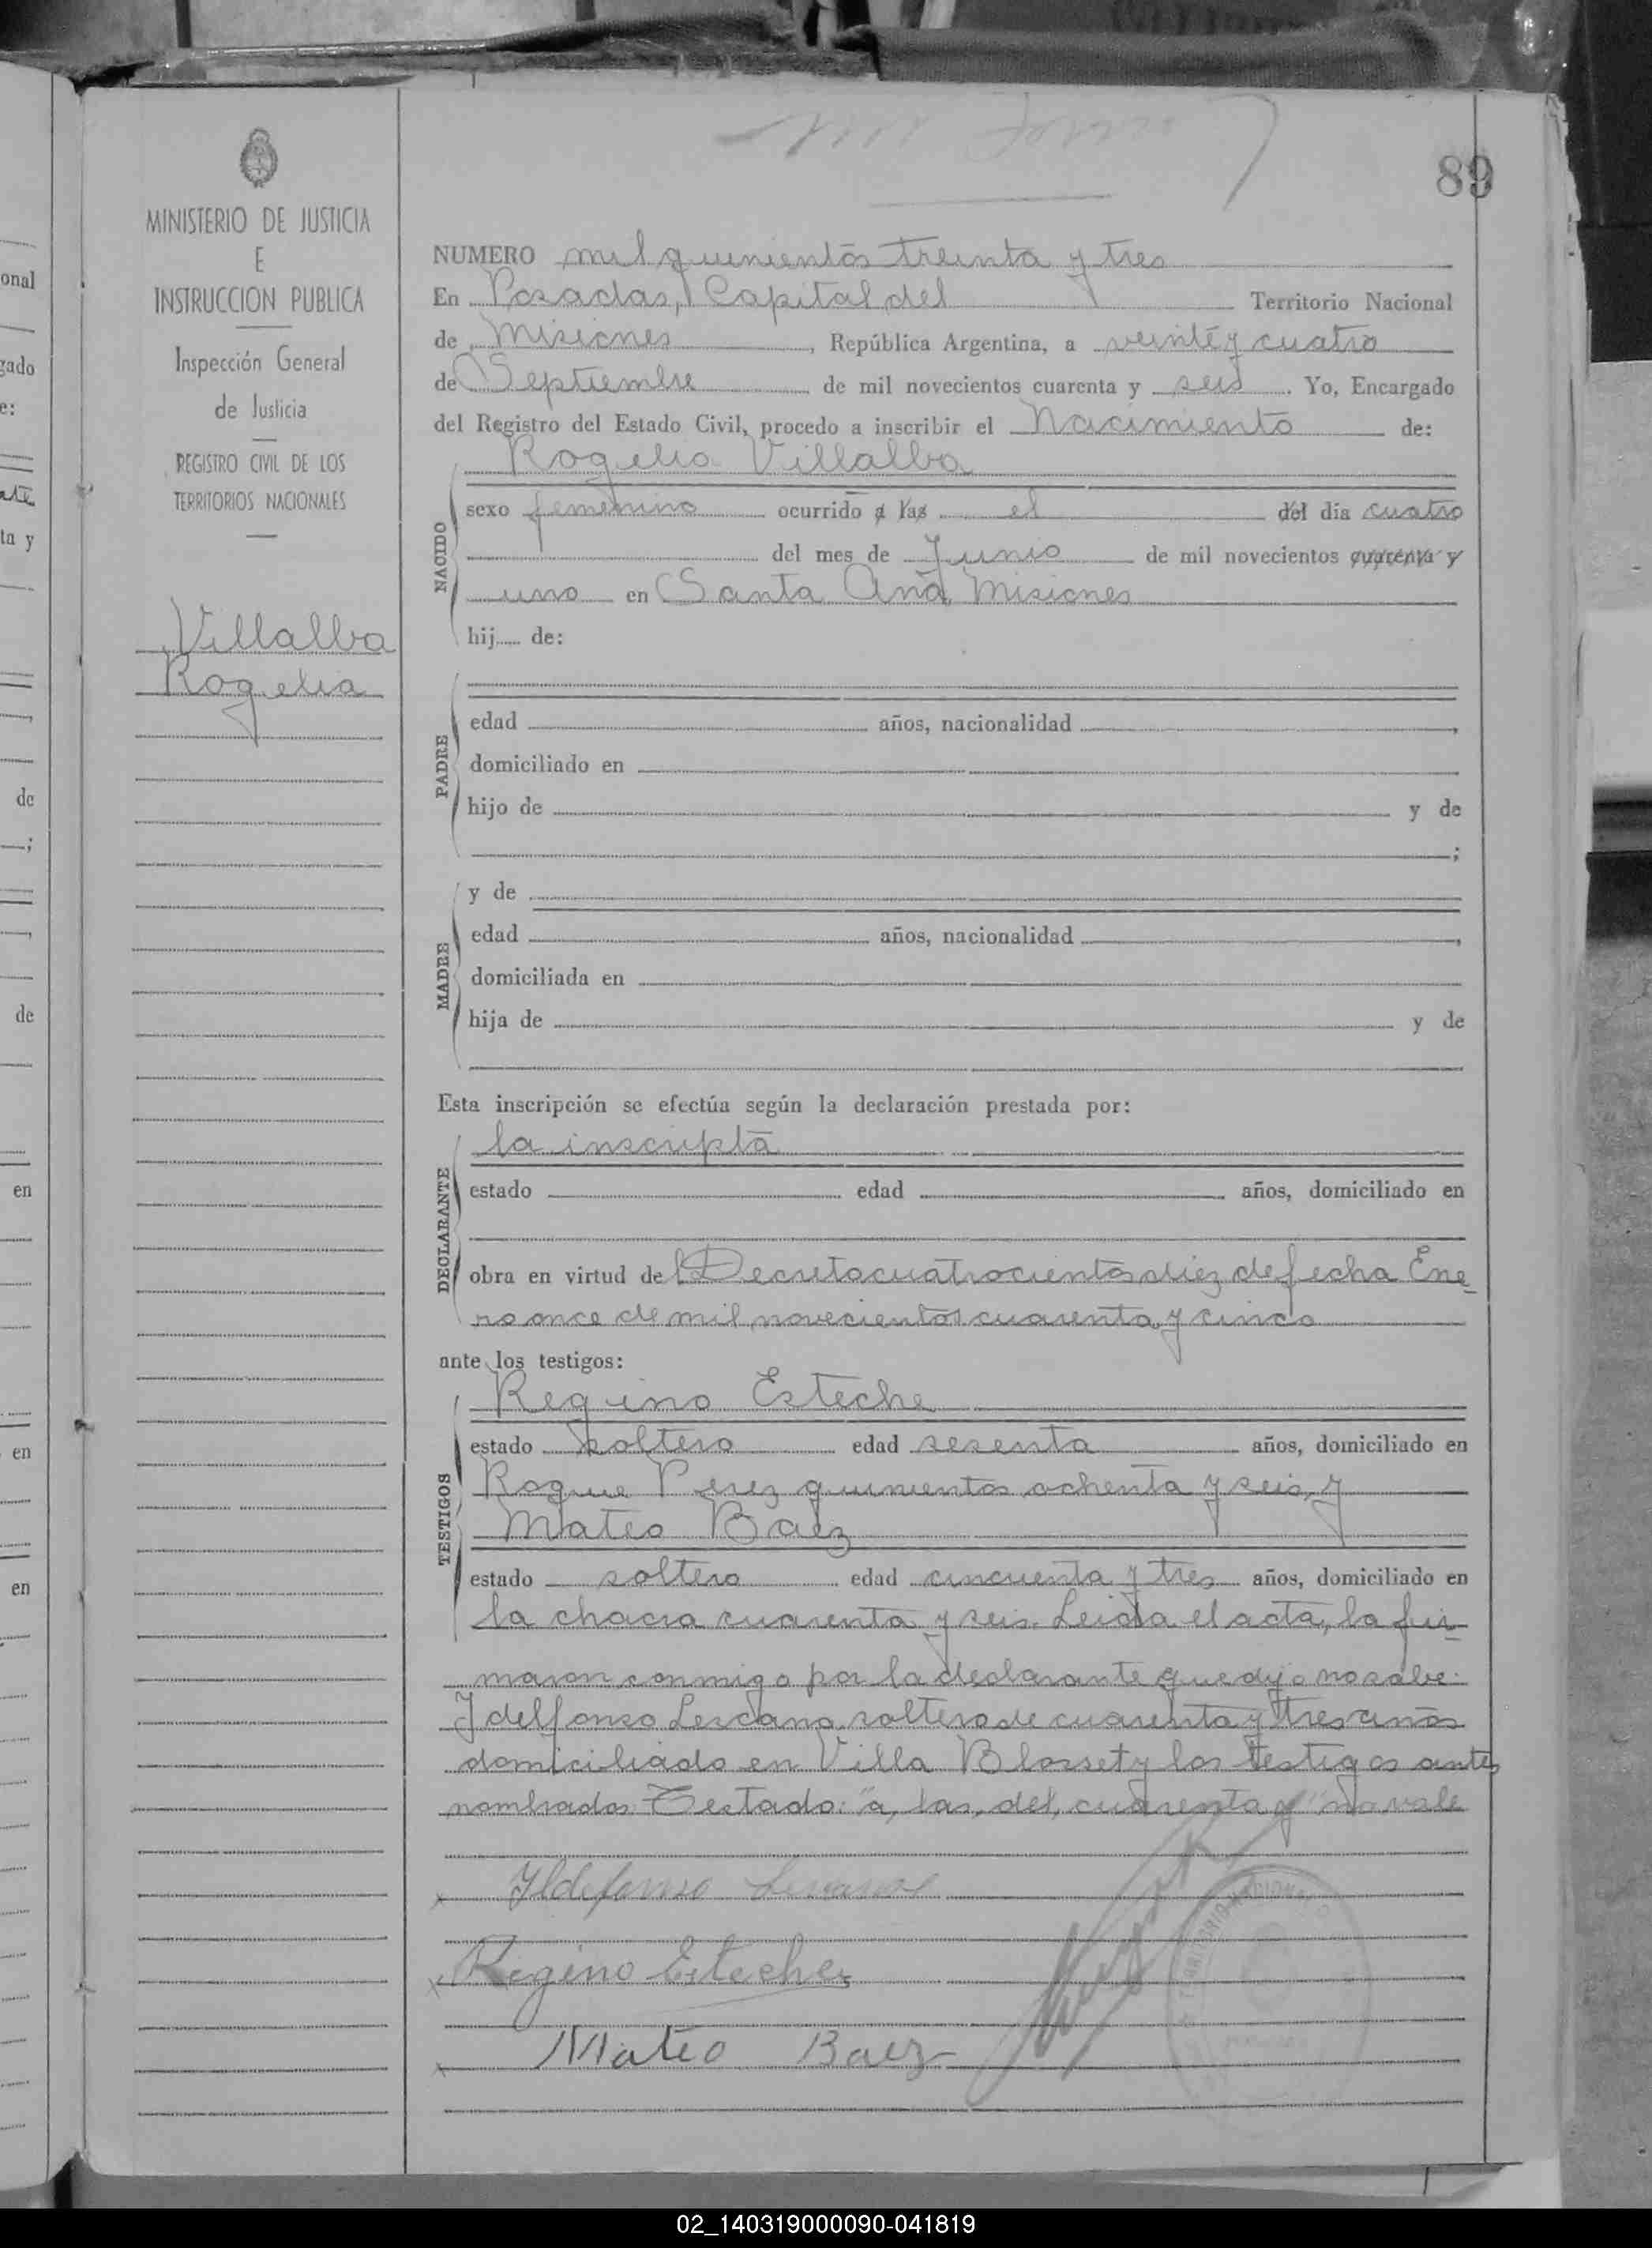 89
MINISTERIO DE JUSTICIA
E
INSTRUCCION PUBLICA
Inspección General
de Justicia
REGISTRO CIVIL DE LOS
TERRITORIOS NACIONALES
Villalba
Rogelia
NUMERO mil quinientos treinta y tres
En Posadas, Capital del Territorio Nacional
de Misiones, República Argentina, a veinte y cuatro
de Septiembre de mil novecientos cuarenta y seis. Yo, Encargado
del Registro del Estado Civil, procedo a inscribir el Nacimiento de:
Rogelia Villalba
NACIDO
sexo femenino ocurrido a las el del día cuatro
del mes de Junio de mil novecientos cuarenta y
uno en Santa Ana, Misiones
hij de:
PADRE
edad años, nacionalidad ,
domiciliado en
hijo de y de
;
MADRE
y de
edad años, nacionalidad ,
domiciliada en
hija de y de
Esta inscripción se efectúa según la declaración prestada por:
DECLARANTE
la inscripta
estado edad años, domiciliado en
obra en virtud del Decreto cuatrocientos diez de fecha Ene
ro once de mil novecientos cuarenta y cinco
ante los testigos:
TESTIGOS
Regino Esteche
estado soltero edad sesenta años, domiciliado en
Roque Perez quinientos ochenta y seis, y
Mateo Baez
estado soltero edad cincuenta y tres años, domiciliado en
la chacra cuarenta y seis. Leida el acta, la fir
maron conmigo por la declarante que dijo no sabe
Ildelfonso Lescano soltero de cuarenta y tres años
domiciliado en Villa Blosset y los testigos antes
nombrados. Testado: "a, las, del, cuarenta y" no vale
Ildefonso
Regino Esteche
Mateo Baez
onal
gado
e:
ta y
de
;
de
en
en
en
02_140319000090-041819